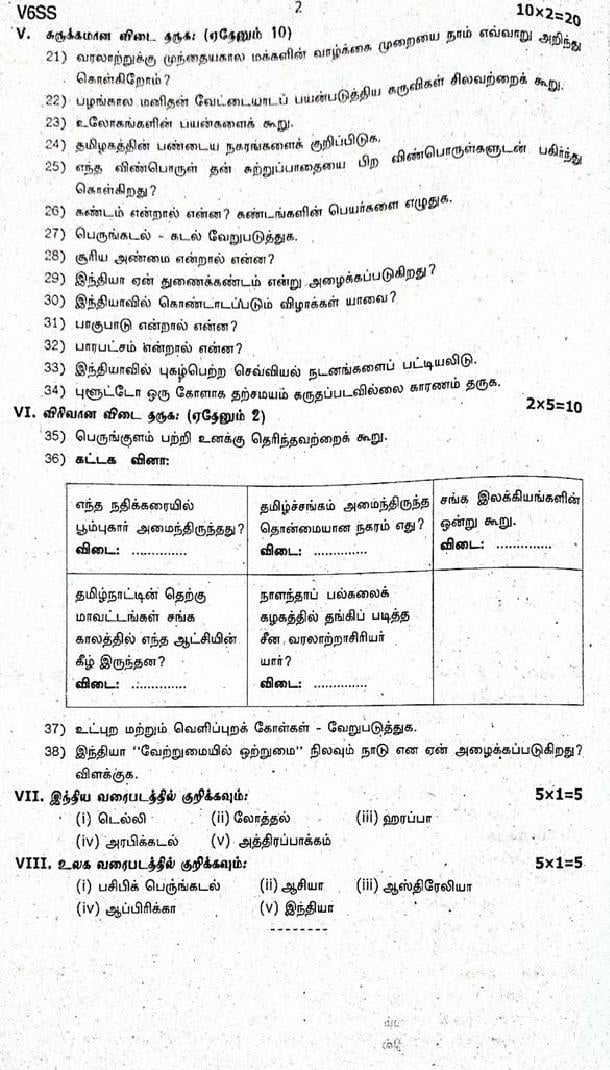 V6SS
2
V. சுருக்கமான விடை தருக: (ஏதேனும் 10) 10×2=20
21) வரலாற்றுக்கு முந்தையகால மக்களின் வாழ்க்கை முறையை நாம் எவ்வாறு அறிந்து
கொள்கிறோம்?
22) பழங்கால மனிதன் வேட்டையாடப் பயன்படுத்திய கருவிகள் சிலவற்றைக் கூறு.
23) உலோகங்களின் பயன்களைக் கூறு.
24) தமிழகத்தின் பண்டைய நகரங்களைக் குறிப்பிடுக.
25) எந்த விண்பொருள் தன் சுற்றுப்பாதையை பிற விண்பொருள்களுடன் பகிர்ந்து
கொள்கிறது?
26) கண்டம் என்றால் என்ன? கண்டங்களின் பெயர்களை எழுதுக.
27) பெருங்கடல் - கடல் வேறுபடுத்துக.
28) சூரிய அண்மை என்றால் என்ன?
29) இந்தியா ஏன் துணைக்கண்டம் என்று அழைக்கப்படுகிறது?
30) இந்தியாவில் கொண்டாடப்படும் விழாக்கள் யாவை?
31) பாகுபாடு என்றால் என்ன?
32) பாரபட்சம் என்றால் என்ன?
33) இந்தியாவில் புகழ்பெற்ற செவ்வியல் நடனங்களைப் பட்டியலிடு.
34) புளூட்டோ ஒரு கோளாக தற்சமயம் கருதப்படவில்லை காரணம் தருக.
VI. விரிவான விடை தருக: (ஏதேனும் 2) 2×5=10
35) பெருங்குளம் பற்றி உனக்கு தெரிந்தவற்றைக் கூறு.
36) கட்டக வினா:
எந்த நதிக்கரையில்
பூம்புகார் அமைந்திருந்தது?
விடை: ..............
தமிழ்ச்சங்கம் அமைந்திருந்த
தொன்மையான நகரம் எது?
விடை: ..............
சங்க இலக்கியங்களின்
ஒன்று கூறு.
விடை: ..............
தமிழ்நாட்டின் தெற்கு
மாவட்டங்கள் சங்க
காலத்தில் எந்த ஆட்சியின்
கீழ் இருந்தன?
விடை: ..............
நாளந்தாப் பல்கலைக்
கழகத்தில் தங்கிப் படித்த
சீன வரலாற்றாசிரியர்
யார்?
விடை: ..............
37) உட்புற மற்றும் வெளிப்புறக் கோள்கள் - வேறுபடுத்துக.
38) இந்தியா "வேற்றுமையில் ஒற்றுமை" நிலவும் நாடு என ஏன் அழைக்கப்படுகிறது?
விளக்குக.
VII. இந்திய வரைபடத்தில் குறிக்கவும்: 5×1=5
(i) டெல்லி (ii) லோத்தல் (iii) ஹரப்பா
(iv) அரபிக்கடல் (v) அத்திரப்பாக்கம்
VIII. உலக வரைபடத்தில் குறிக்கவும்: 5×1=5
(i) பசிபிக் பெருங்கடல் (ii) ஆசியா (iii) ஆஸ்திரேலியா
(iv) ஆப்பிரிக்கா (v) இந்தியா
--------